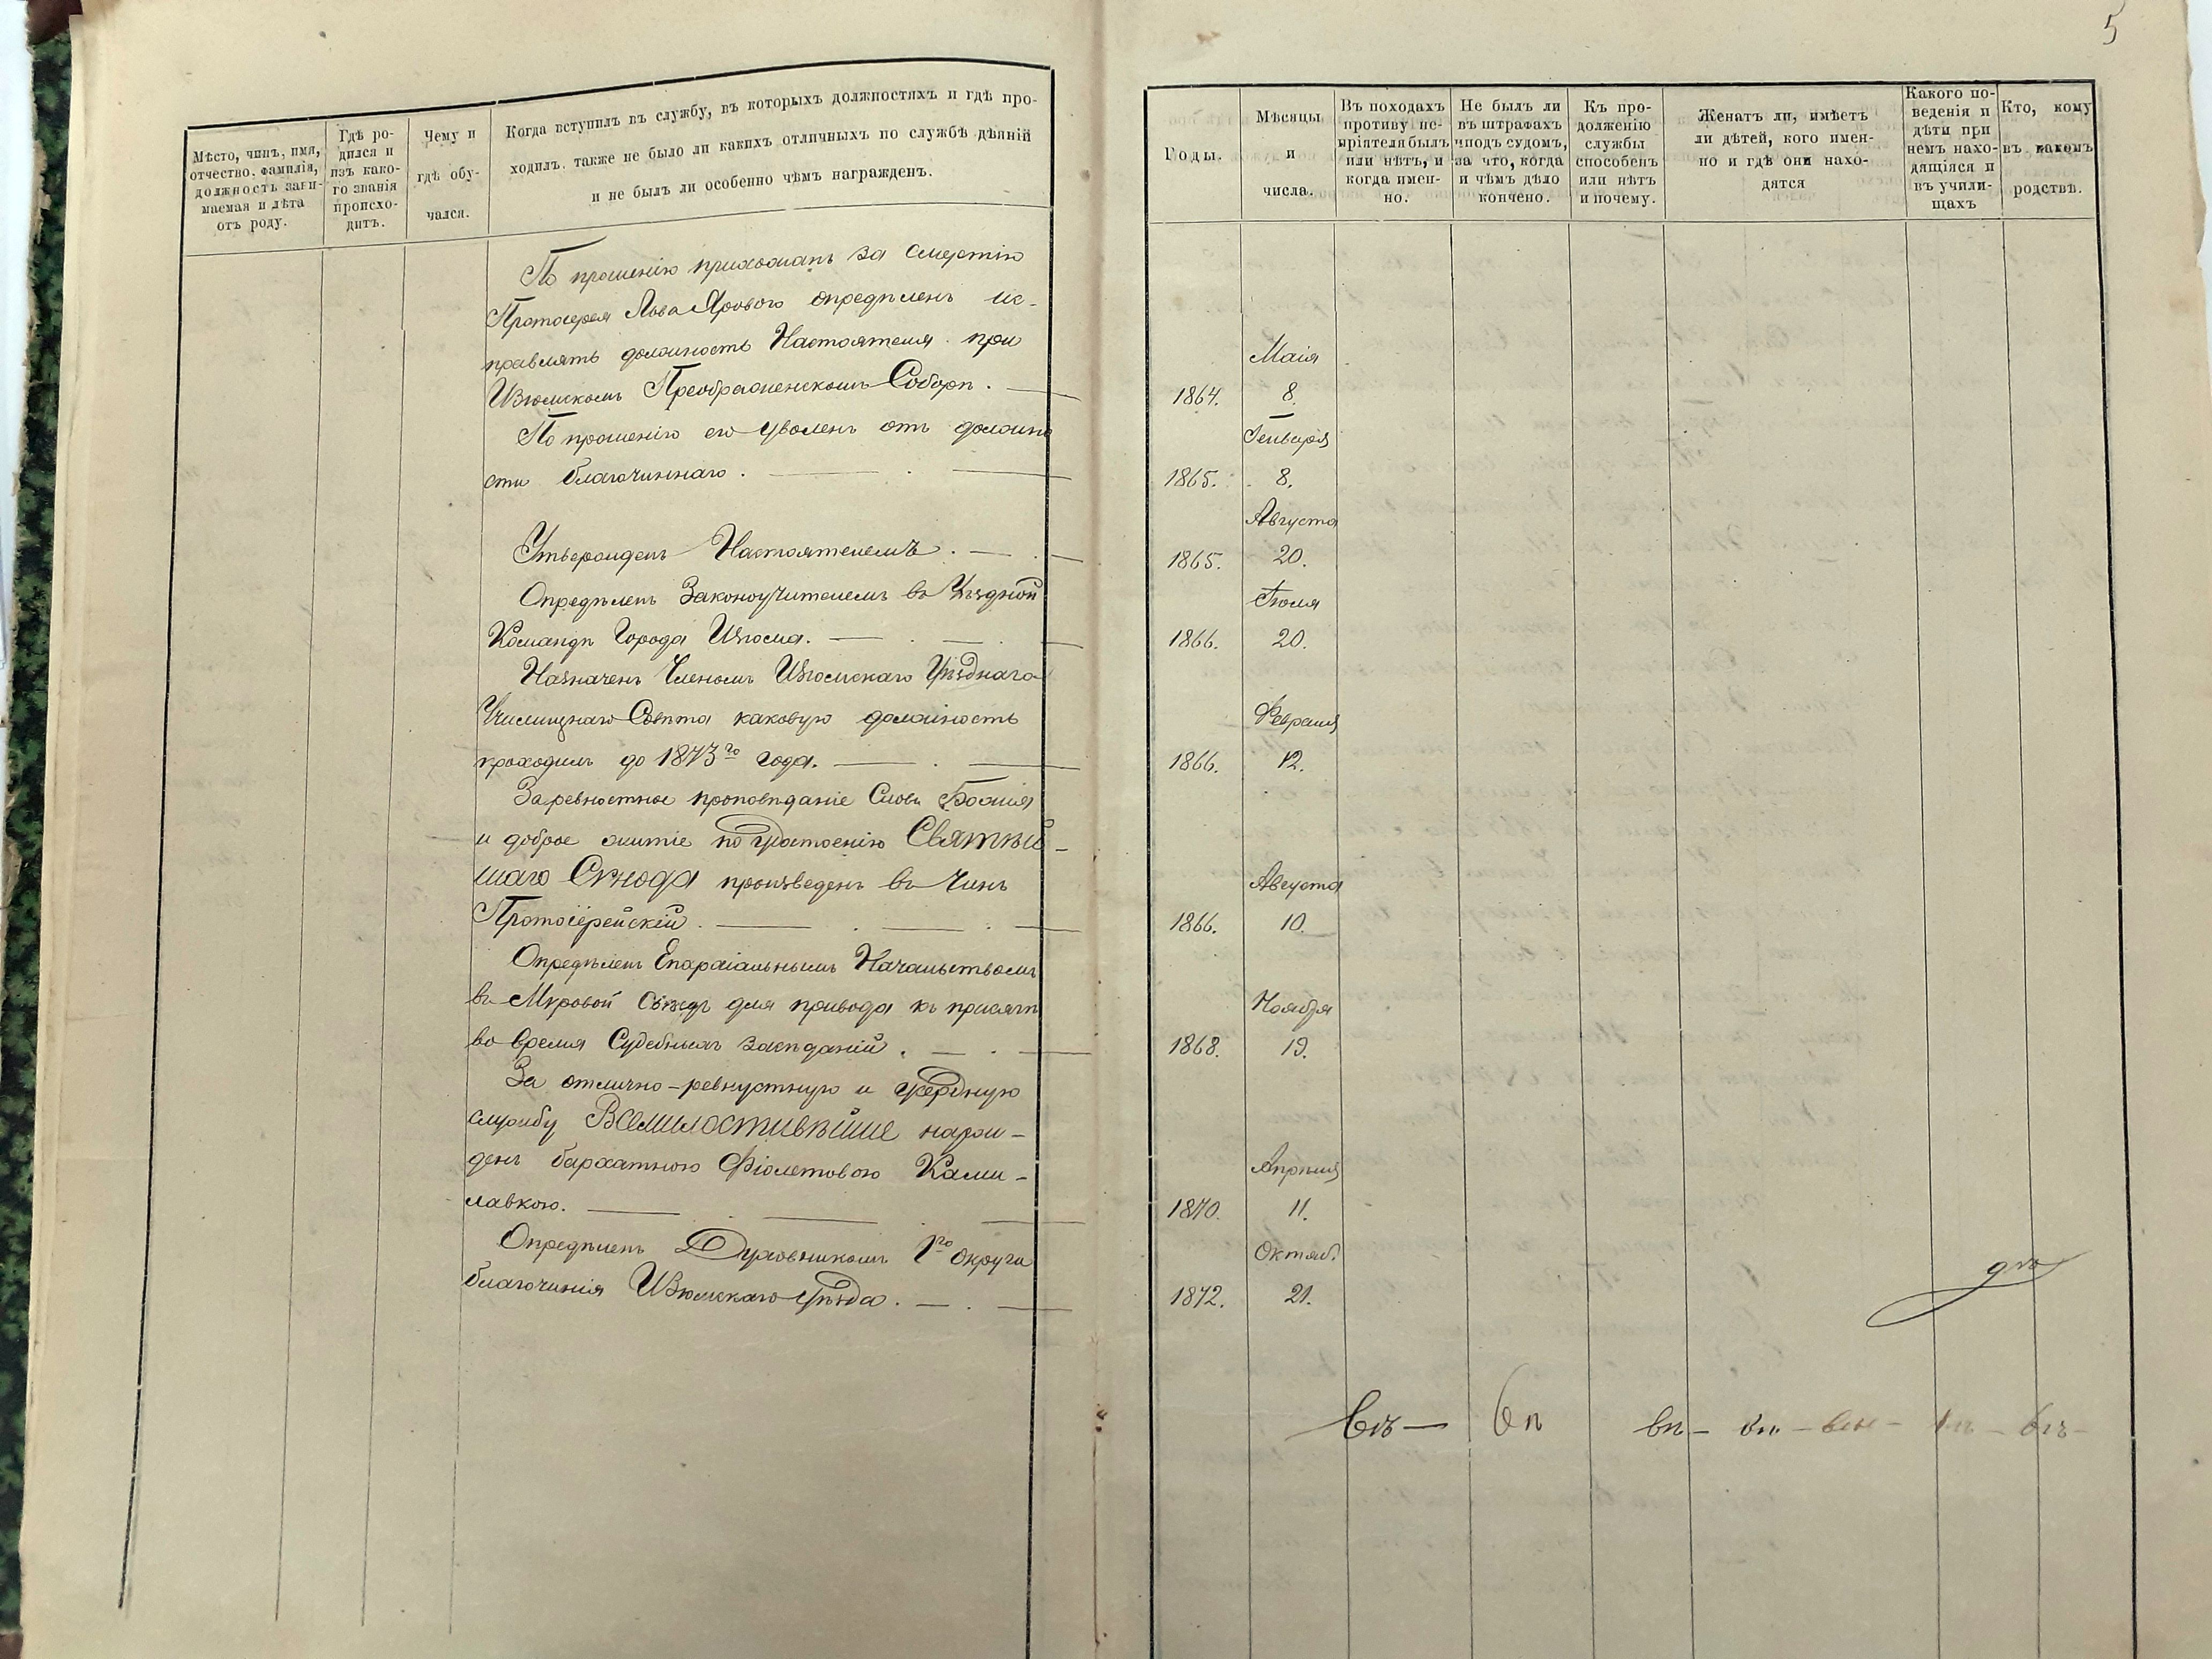 5
Мѣсто, чинъ, имя,
отчество, фамилія,
должность зани-
маемая и лѣта
отъ роду.
Гдѣ ро-
дился и
изъ како-
го званія
происхо-
дитъ.
Чему и
гдѣ обу-
чался.
Когда вступилъ въ службу, въ которыхъ должностяхъ и гдѣ про-
ходилъ, также не было ли какихъ отличныхъ по службѣ дѣяній
и не былъ ли особенно чѣмъ награжденъ.
Годы.
Мѣсяцы
и
числа.
Въ походахъ
противу не-
пріятеля былъ
или нѣтъ, и
когда имен-
но.
Не былъ ли
въ штрафахъ
иподъ судомъ,
за что, когда
и чѣмъ дѣло
кончено.
Къ про-
долженію
службы
способенъ
или нѣтъ
и почему.
Женатъ ли, имѣетъ
ли дѣтей, кого имен-
но и гдѣ они нахо-
дятся
Какого по-
веденія и
дѣти при
немъ нахо-
дящіяся и
въ учили-
щахъ
Кто, кому
въ какомъ
родствѣ.
По прошенію прихожанъ за смертію
Протоіерея Льва Ярового опредѣленъ ис-
правлять должность Настоятеля при
Изюмскомъ Преображенскомъ Соборѣ.
Маія
1864. 8.
По прошенію его уволенъ отъ должно
сти благочиннаго.
Генваря
1865. 8.
Утвержденъ Настоятелемъ.
Августа
1865. 20.
Опредѣленъ Законоучителемъ въ Уѣздной
Командѣ Города Изюма.
Іюля
1866. 20.
Назначенъ Членомъ Изюмскаго Уѣзднаго
Училищнаго Совѣта каковую должность
проходилъ до 1873го года.
Февраля
1866. 12.
За ревностное проповѣданіе Слова Божія
и доброе житіе по удостоенію Святѣй-
шаго Сѵнода произведенъ въ Чинъ
Протоіерейскій.
Августа
1866. 10.
Опредѣленъ Епархіальнымъ Начальствомъ
въ Мировой Съѣздъ для привода къ присягѣ
во время Судебныхъ засѣданій.
Ноября
1868. 19.
За отлично-ревностную и усердную
службу Всемилостивѣйше награж-
денъ бархатною фіолетовою Ками-
лавкою.
Апрѣля
1870. 11.
Опредѣленъ Духовникомъ 1го округа
благочинія Изюмскаго уѣзда.
Октяб.
1872. 21.